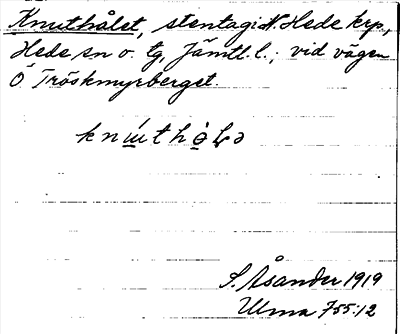 Knuthålet, stentag i N. Hede krp,
Hede sn o. tg, Jämtl. l.; vid vägen
Ö Tröskmyrberget.
S. Åsander 1919
Ulma 755:12